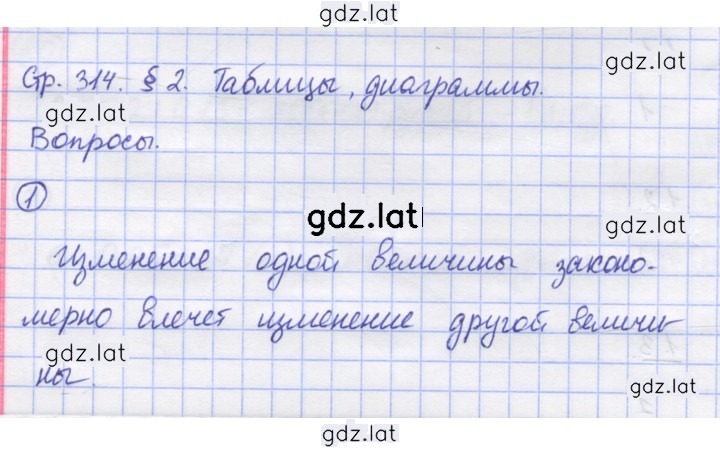 gdz.lat
gdz.lat
Стр. 314. § 2. Таблицы, диаграммы.
gdz.lat
Вопросы.
1
gdz.lat
gdz.lat
Изменение одной величины законо-
мерно влечет изменение другой величи-
gdz.lat
ны.
gdz.lat
gdz.lat